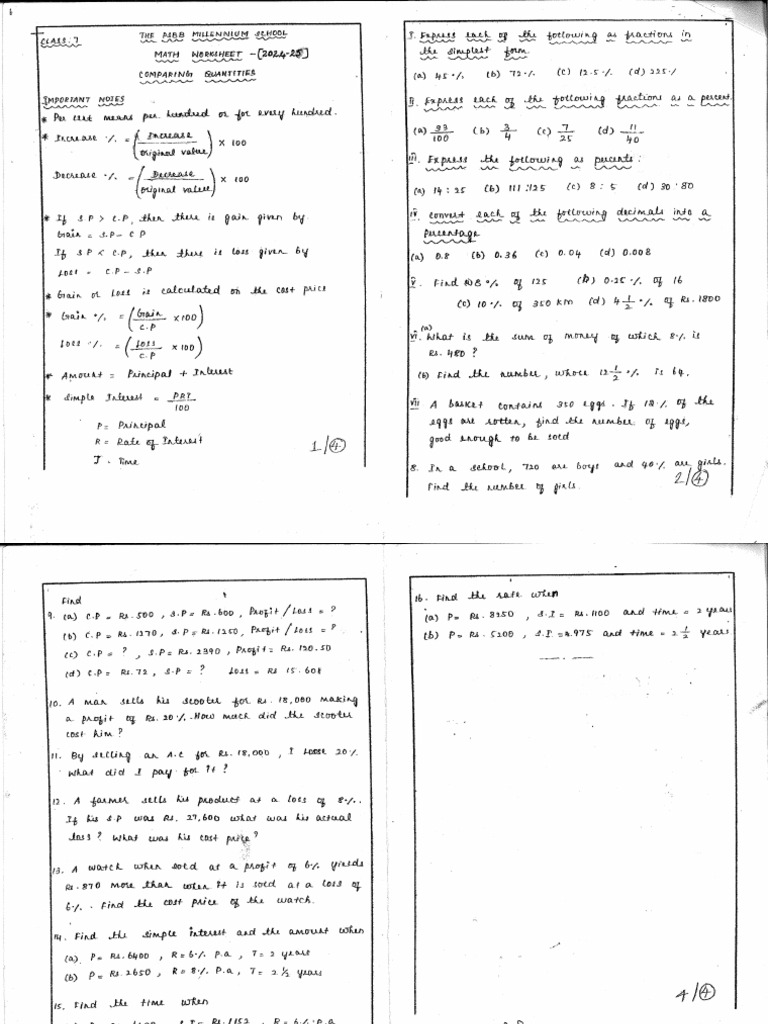 CLASS: 7
THE PSBB MILLENNIUM SCHOOL
MATH WORKSHEET - [2024-25]
COMPARING QUANTITIES
IMPORTANT NOTES
* Per cent means per hundred or for every hundred.
* Increase % = (Increase / original value) × 100
Decrease % = (Decrease / original value) × 100
* If S.P > C.P, then there is gain given by
Gain = S.P - C.P
If S.P < C.P, then there is loss given by
Loss = C.P - S.P
* Gain or Loss is calculated on the cost price
* Gain % = (Gain / C.P × 100)
Loss % = (Loss / C.P × 100)
* Amount = Principal + Interest
* Simple Interest = PRT / 100
P = Principal
R = Rate of Interest
T - Time
1/4
I. Express each of the following as fractions in
the simplest form
(a) 45% (b) 72% (c) 12.5% (d) 225%
II. Express each of the following fractions as a percent.
(a) 33/100 (b) 3/4 (c) 7/25 (d) 11/40
III. Express the following as percents:
(a) 14:25 (b) 111:125 (c) 8:5 (d) 30:80
IV. Convert each of the following decimals into a
Percentage
(a) 0.8 (b) 0.36 (c) 0.04 (d) 0.008
V. Find % of 125 (b) 0.25% of 16
(c) 10% of 350 km (d) 4 1/2 % of Rs. 1800
VI. (a) What is the sum of money of which 8% is
Rs. 480?
(b) Find the number, whose 12 1/2 % is 64.
VII A basket contains eggs. If 12% of the
eggs are rotten, find the number of eggs,
good enough to be sold
8. In a school, 720 are boys and 40% are girls.
Find the number of girls.
2/4
Find
9. (a) C.P = Rs. 500, S.P = Rs. 600, Profit / Loss = ?
(b) C.P = Rs. 1270, S.P = Rs. 1250, Profit / Loss = ?
(c) C.P = ?, S.P = Rs. 2390, Profit = Rs. 120.50
(d) C.P = Rs. 72, S.P = ? Loss = Rs 15.608
10. A man sells his scooter for Rs. 18,000 making
a profit of Rs. 20%. How much did the scooter
cost him?
11. By selling an A.C for Rs. 18,000, I loose 20%
What did I pay for it?
12. A farmer sells his product at a loss of 8%.
If his S.P was Rs. 27,600 what was his actual
loss? What was his cost price?
13. A watch when sold at a profit of 6% yields
Rs. 870 more than when it is sold at a loss of
6%. Find the cost price of the watch.
14. Find the simple interest and the amount when
(a) P = Rs. 6400, R = 6% p.a, T = 2 years
(b) P = Rs. 2650, R = 8% p.a, T = 2 1/2 years
15. Find the time when
S.I = Rs. 1152, R = 6% p.a
16. Find the rate when
(a) P = Rs. 8250, S.I = Rs. 1100 and time = 2 years
(b) P = Rs. 5200, S.I = 975 and time = 2 1/2 years
4/4